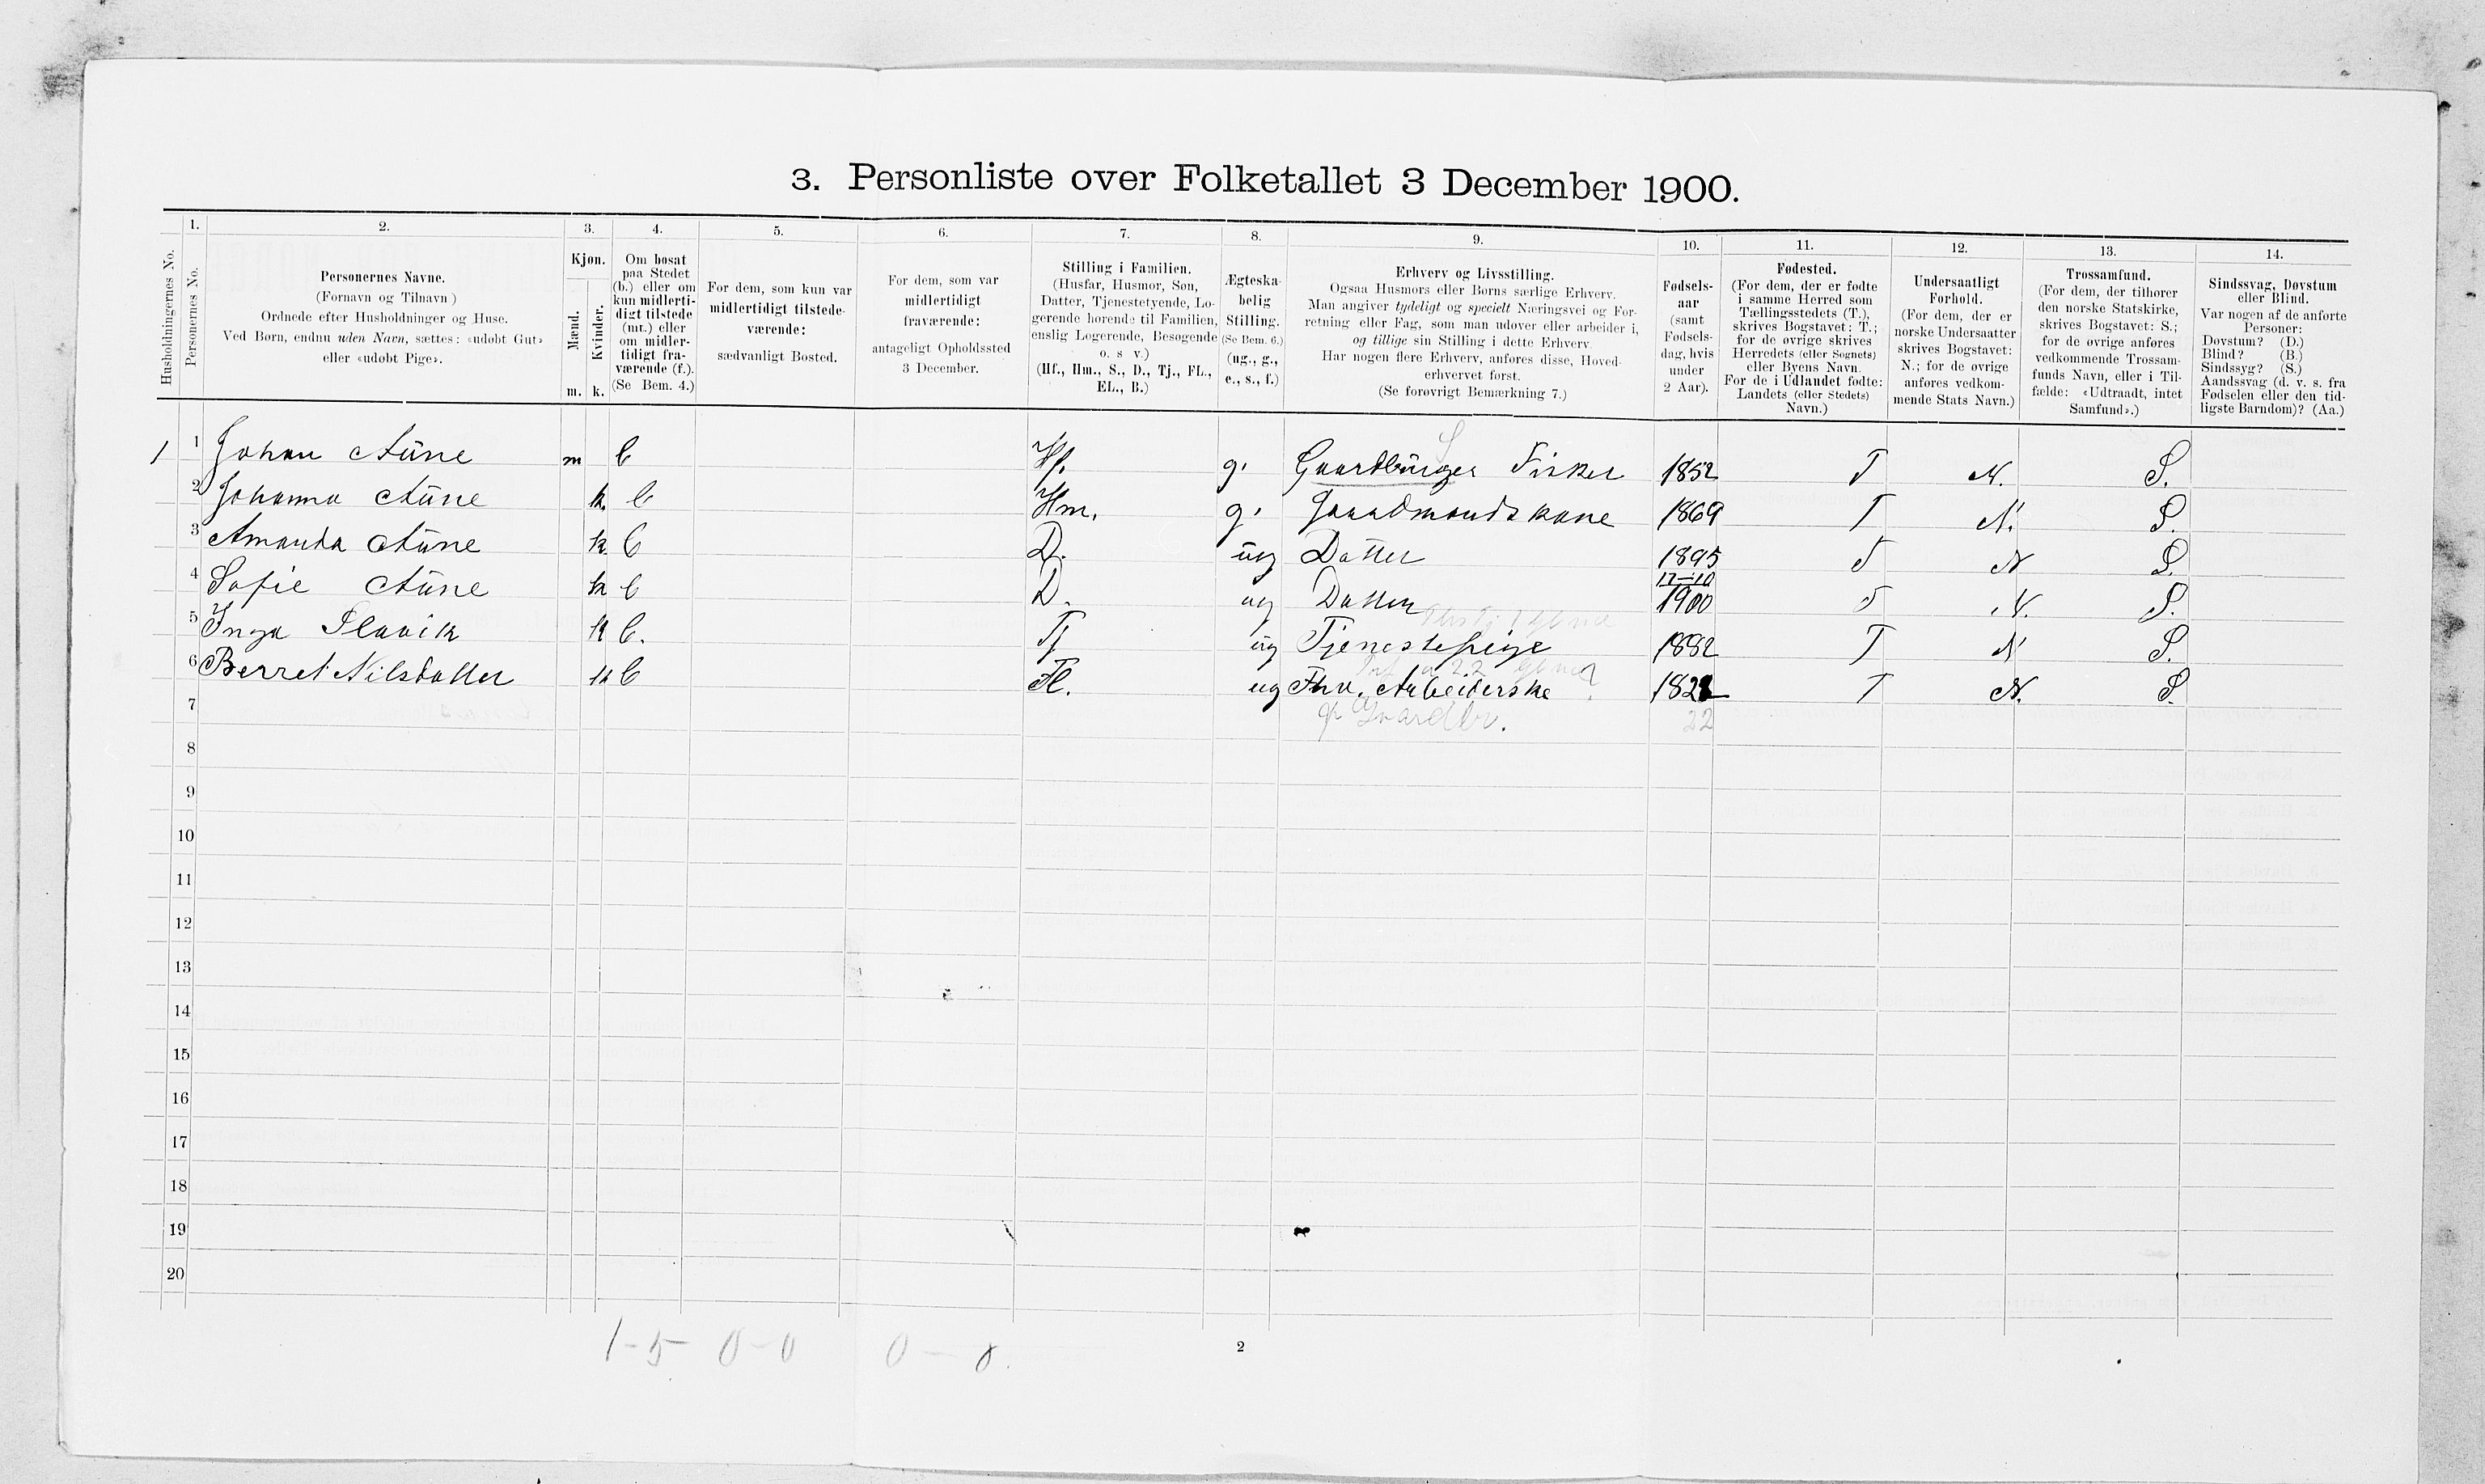 3. Personliste over Folketallet 3 December 1900.
Husholdningernes No.
1.
Personernes No.
2.
Personernes Navne.
(Fornavn og Tilnavn)
Ordnede efter Husholdninger og Huse.
Ved Børn, endnu uden Navn, sættes: «udøbt Gut»
eller «udøbt Pige».
3.
Kjøn.
Mænd.
Kvinder.
m. k.
4.
Om bosat
paa Stedet
(b.) eller om
kun midlerti-
digt tilstede
(mt.) eller
om midler-
tidigt fra-
værende (f.).
(Se Bem. 4.)
5.
For dem, som kun var
midlertidigt tilstede-
værende:
sædvanligt Bosted.
6.
For dem, som var
midlertidigt
fraværende:
antageligt Opholdssted
3 December.
7.
Stilling i Familien.
(Husfar, Husmor, Søn,
Datter, Tjenestetyende, Lo-
gerende hørende til Familien,
enslig Logerende, Besøgende
o. s v.)
(Hf., Hm., S., D., Tj., FL.,
EL., B.)
8.
Ægteska-
belig
Stilling.
(Se Bem. 6.)
(ug., g.,
e., s., f.)
9.
Erhverv og Livsstilling.
Ogsaa Husmors eller Børns særlige Erhverv.
Man angiver tydeligt og specielt Næringsvei og For-
retning eller Fag, som man udøver eller arbeider i,
og tillige sin Stilling i dette Erhverv.
Har nogen flere Erhverv, anføres disse, Hoved-
erhvervet først.
(Se forøvrigt Bemærkning 7.)
10.
Fødsels-
aar
(samt
Fødsels-
dag, hvis
under
2 Aar).
11.
Fødested.
(For dem, der er fødte
i samme Herred som
Tællingsstedets (T.),
skrives Bogstavet: T.;
for de øvrige skrives
Herredets (eller Sognets)
eller Byens Navn.
For de i Udlandet fødte:
Landets (eller Stedets)
Navn.)
12.
Undersaatligt
Forhold.
(For dem, der er
norske Undersaatter
skrives Bogstavet:
N.; for de øvrige
anføres vedkom-
mende Stats Navn.)
13.
Trossamfund.
(For dem, der tilhører
den norske Statskirke,
skrives Bogstavet: S.;
for de øvrige anføres
vedkommende Trossam-
funds Navn, eller i Til-
fælde: «Udtraadt, intet
Samfund».)
14.
Sindssvag, Døvstum
eller Blind.
Var nogen af de anførte
Personer:
Døvstum? (D.)
Blind? (B.)
Sindssyg? (S.)
Aandssvag (d. v. s. fra
Fødselen eller den tid-
ligste Barndom)? (Aa.)
1 1 Johan Aüne m b Hf. g. Gaardbrüger Fisker 1852 T N. S.
2 Johanna Aüne k. b Hm. g. Gaardmandskone 1869 T N. S.
3 Amanda Aüne k. b D. üg Datter 1895 T N S.
4 Sofie Aüne k b D. ug Datter 17-10 1900 T N. S.
5 Inga Slavik k b. Tj üg Tjenestepige 1882 T N S.
6 Berret Nilsdatter k b Fl. ug Fhv. Arbeiderske ? 182 T N. S.
7 Gaardbr. 22
8
9
10
11
12
13
14
15
16
17
18
19
20
1-5 0-0 0-0.
2